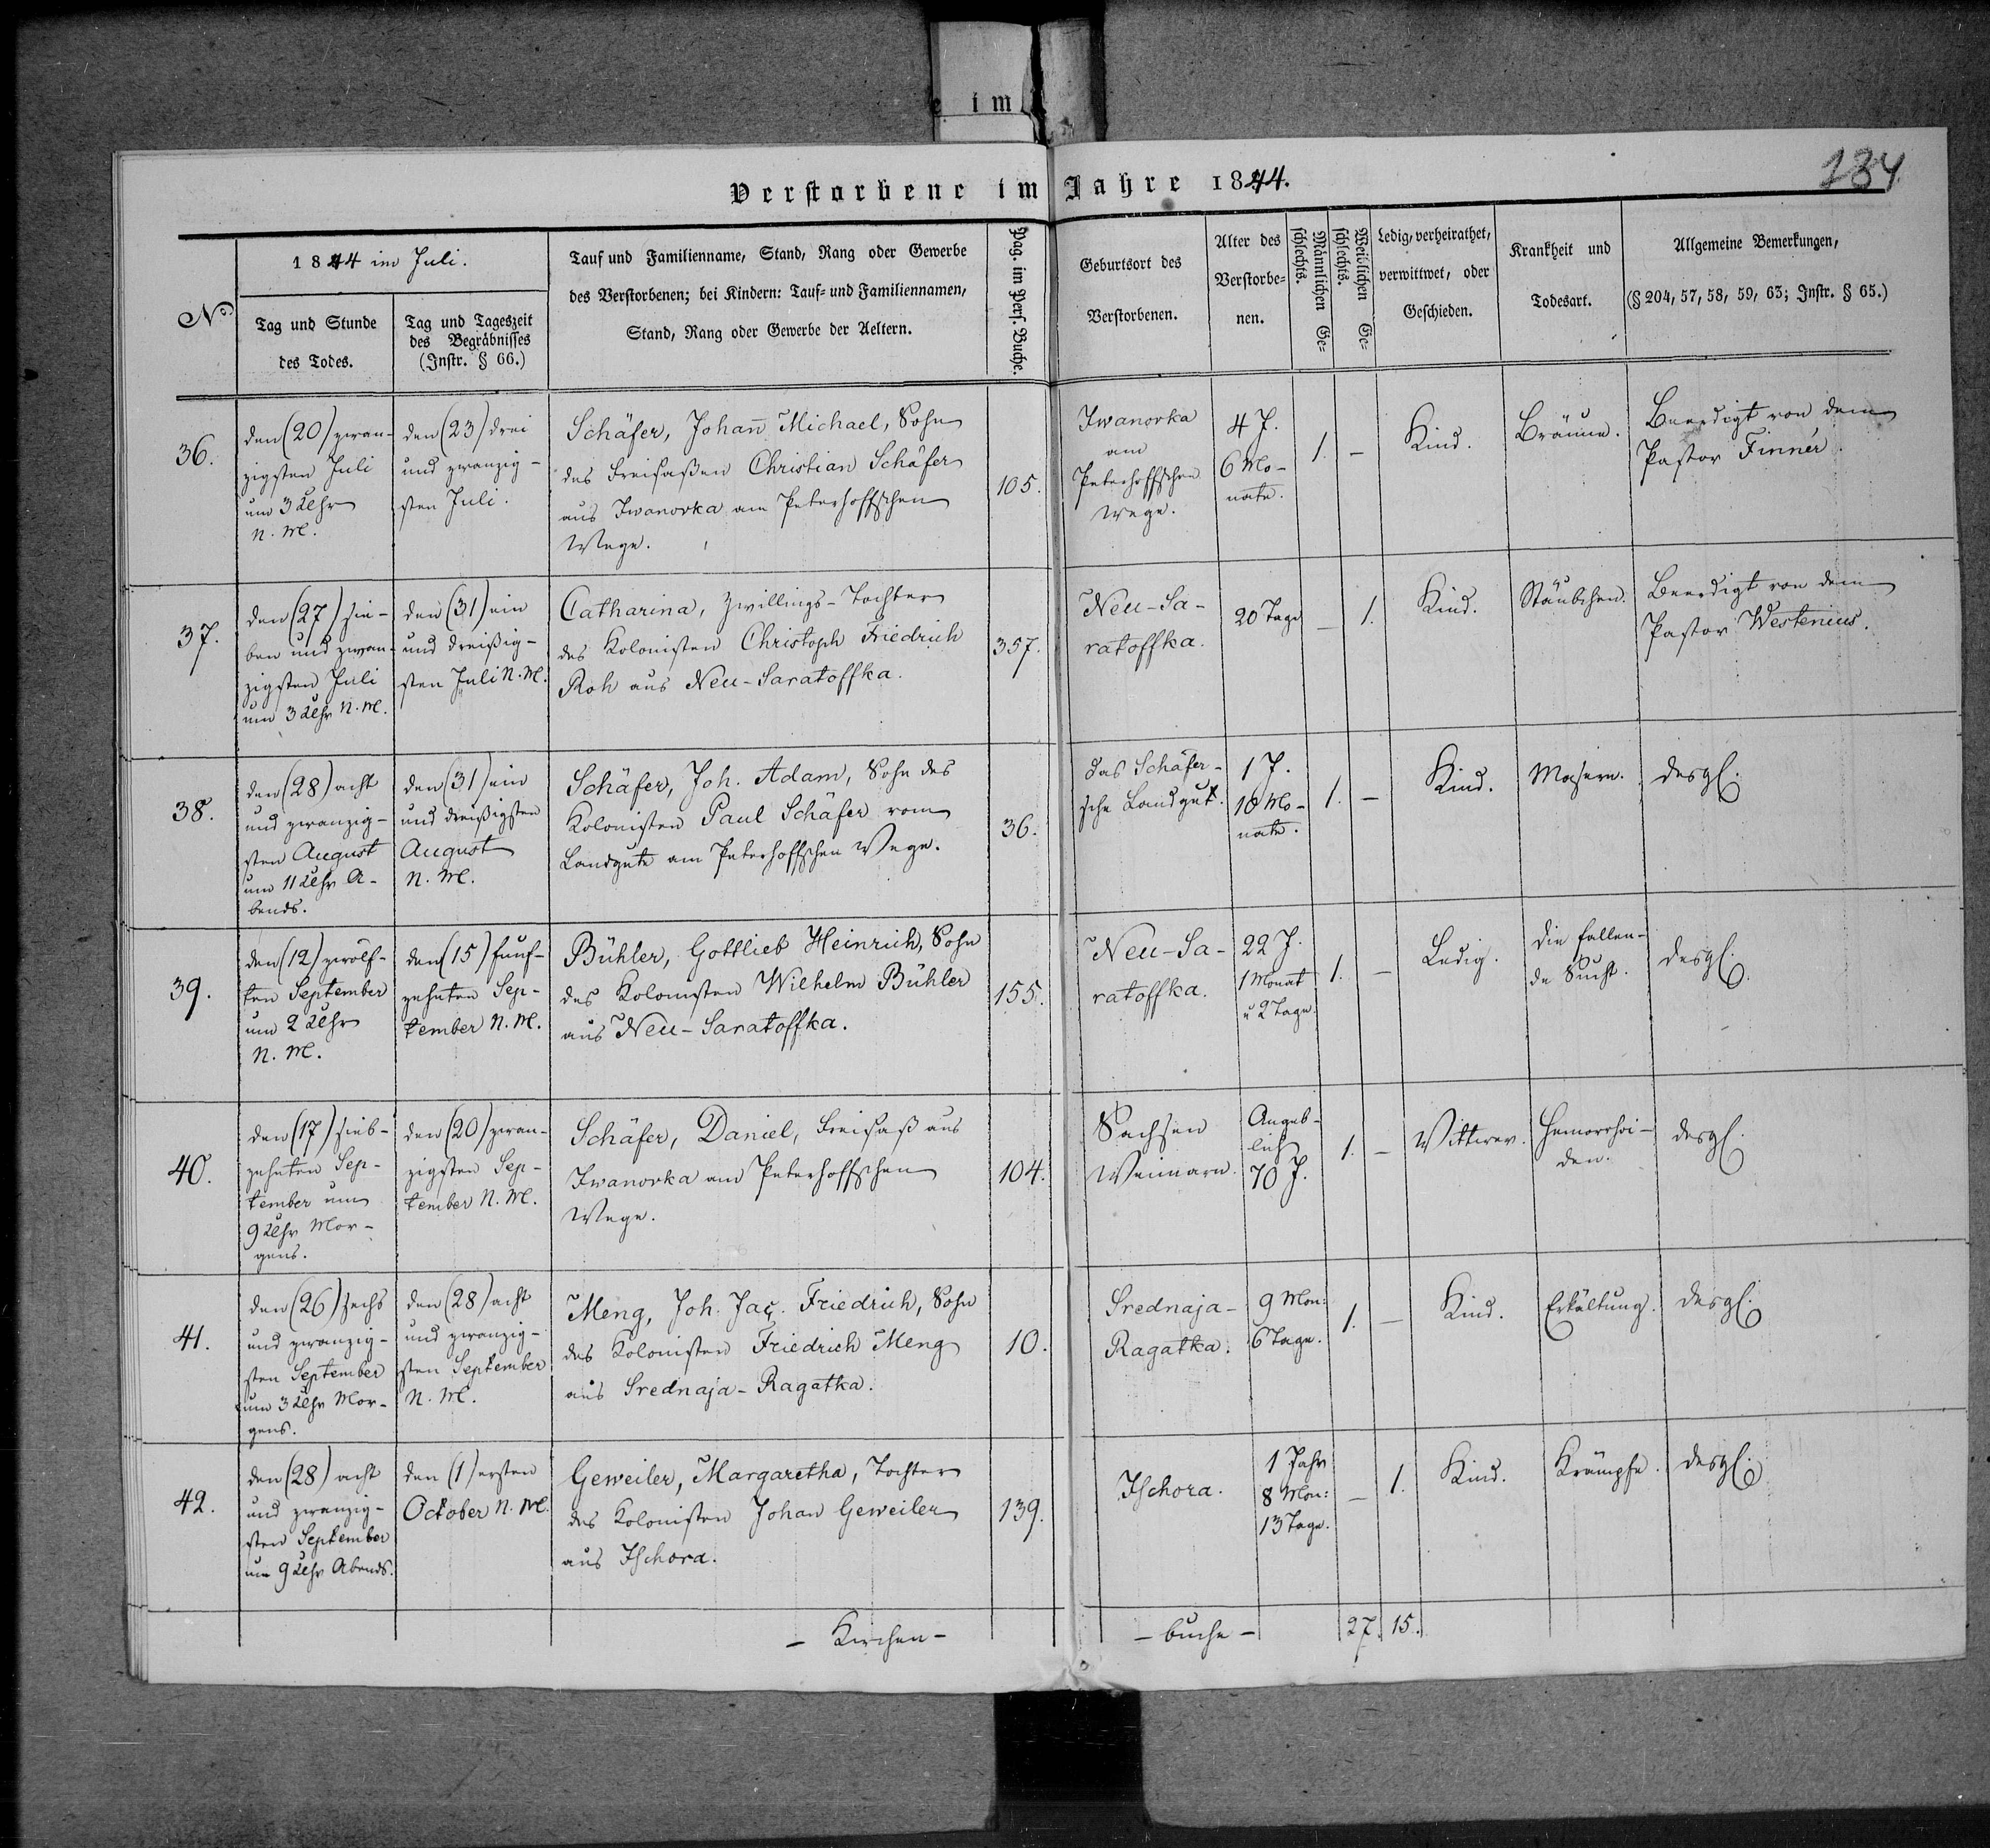 e im
Verstorbene im Jahre 1844.
184
No
1844 im Juli.
Tag und Stunde
des Todes.
Tag und Tageszeit
des Begräbnisses
(Instr. § 66.)
Tauf und Familienname, Stand, Rang oder Gewerbe
des Verstorbenen; bei Kindern: Tauf- und Familiennamen,
Stand, Rang oder Gewerbe der Aeltern.
Pag. im Pers. Buche.
Geburtsort des
Verstorbenen.
Alter des
Verstorbe-
nen.
Männlichen Ge-
schlechts.
Weiblichen Ge-
schlechts.
Ledig, verheirathet,
verwittwet, oder
Geschieden.
Krankheit und
Todesart.
Allgemeine Bemerkungen,
(§ 204, 57, 58, 59, 63; Instr. § 65.)
36.
den (20) zwan-
zigsten Juli
um 3 Uhr
N. M.
den (23) drei
und zwanzig-
sten Juli.
Schäfer, Johan̄ Michael, Sohn
des Freisaßen Christian Schäfer
aus Iwanovka am Peterhoffschen
Wege.
105.
Iwanovka
am
Peterhoffschen
Wege.
4 J.
6 Mo-
nate.
1.
–
Kind.
Bräune.
Beerdigt von dem
Pastor Finnér.
37.
den (27) sie-
ben und zwan-
zigsten Juli
um 3 Uhr N. M.
den (31) ein
und dreißig-
sten Juli N. M.
Catharina, Zwillings-Tochter
des Kolonisten Christoph Friedrich
Roh aus Neu-Saratoffka.
357.
Neu-Sa-
ratoffka.
20 Tage
–
1.
Kind.
Stäubchen.
Beerdigt von dem
Pastor Westenius.
38.
den (28) acht
und zwanzig-
sten August
um 11 Uhr A-
bends.
den (31) ein
und dreißigsten
August
N. M.
Schäfer, Joh. Adam, Sohn des
Kolonisten Paul Schäfer vom
Landgute am Peterhoffschen Wege.
36.
das Schäfer-
sche Landgut.
1 J.
10 Mo-
nate.
1.
–
Kind.
Masern.
desgl.
39.
den (12) zwölf-
ten September
um 2 Uhr
N. M.
den (15) fünf-
zehnten Sep-
tember N. M.
Bühler, Gottlieb Heinrich, Sohn
des Kolonisten Wilhelm Bühler
aus Neu-Saratoffka.
155.
Neu-Sa-
ratoffka.
22 J.
1 Monat
u 2 Tage.
1.
–
Ledig.
Die fallen-
de Sucht.
desgl.
40.
den (17) sieb-
zehnten Sep-
tember um
9 Uhr Mor-
gens.
den (20) zwan-
zigsten Sep-
tember N. M.
Schäfer, Daniel, Freisaß aus
Iwanovka am Peterhoffschen
Wege.
104.
Sachsen
Weimarn.
Angeb-
lich
70 J.
1.
–
Wittwer.
Hemorrhoi-
den.
desgl.
41.
den (26) sechs
und zwanzig-
sten September
um 3 Uhr Mor-
gens.
den (28) acht
und zwanzig-
sten September
N. M.
Meng, Joh. Jac. Friedrich, Sohn
des Kolonisten Friedrich Meng
aus Srednaja-Ragatka.
10.
Srednaja-
Ragatka.
9 Mon:
6 Tage.
1.
–
Kind.
Erkältung.
desgl.
42.
den (28) acht
und zwanzig-
sten September
um 9 Uhr Abends.
den (1) ersten
October N. M.
Geweiler, Margaretha, Tochter
des Kolonisten Johan Geweiler
aus Ischora.
139.
Ischora.
1 Jahr
8 Mon:
13 Tage.
–
1.
Kind.
Krämpfe.
desgl.
– Kirchen –
– buche –
27.
15.